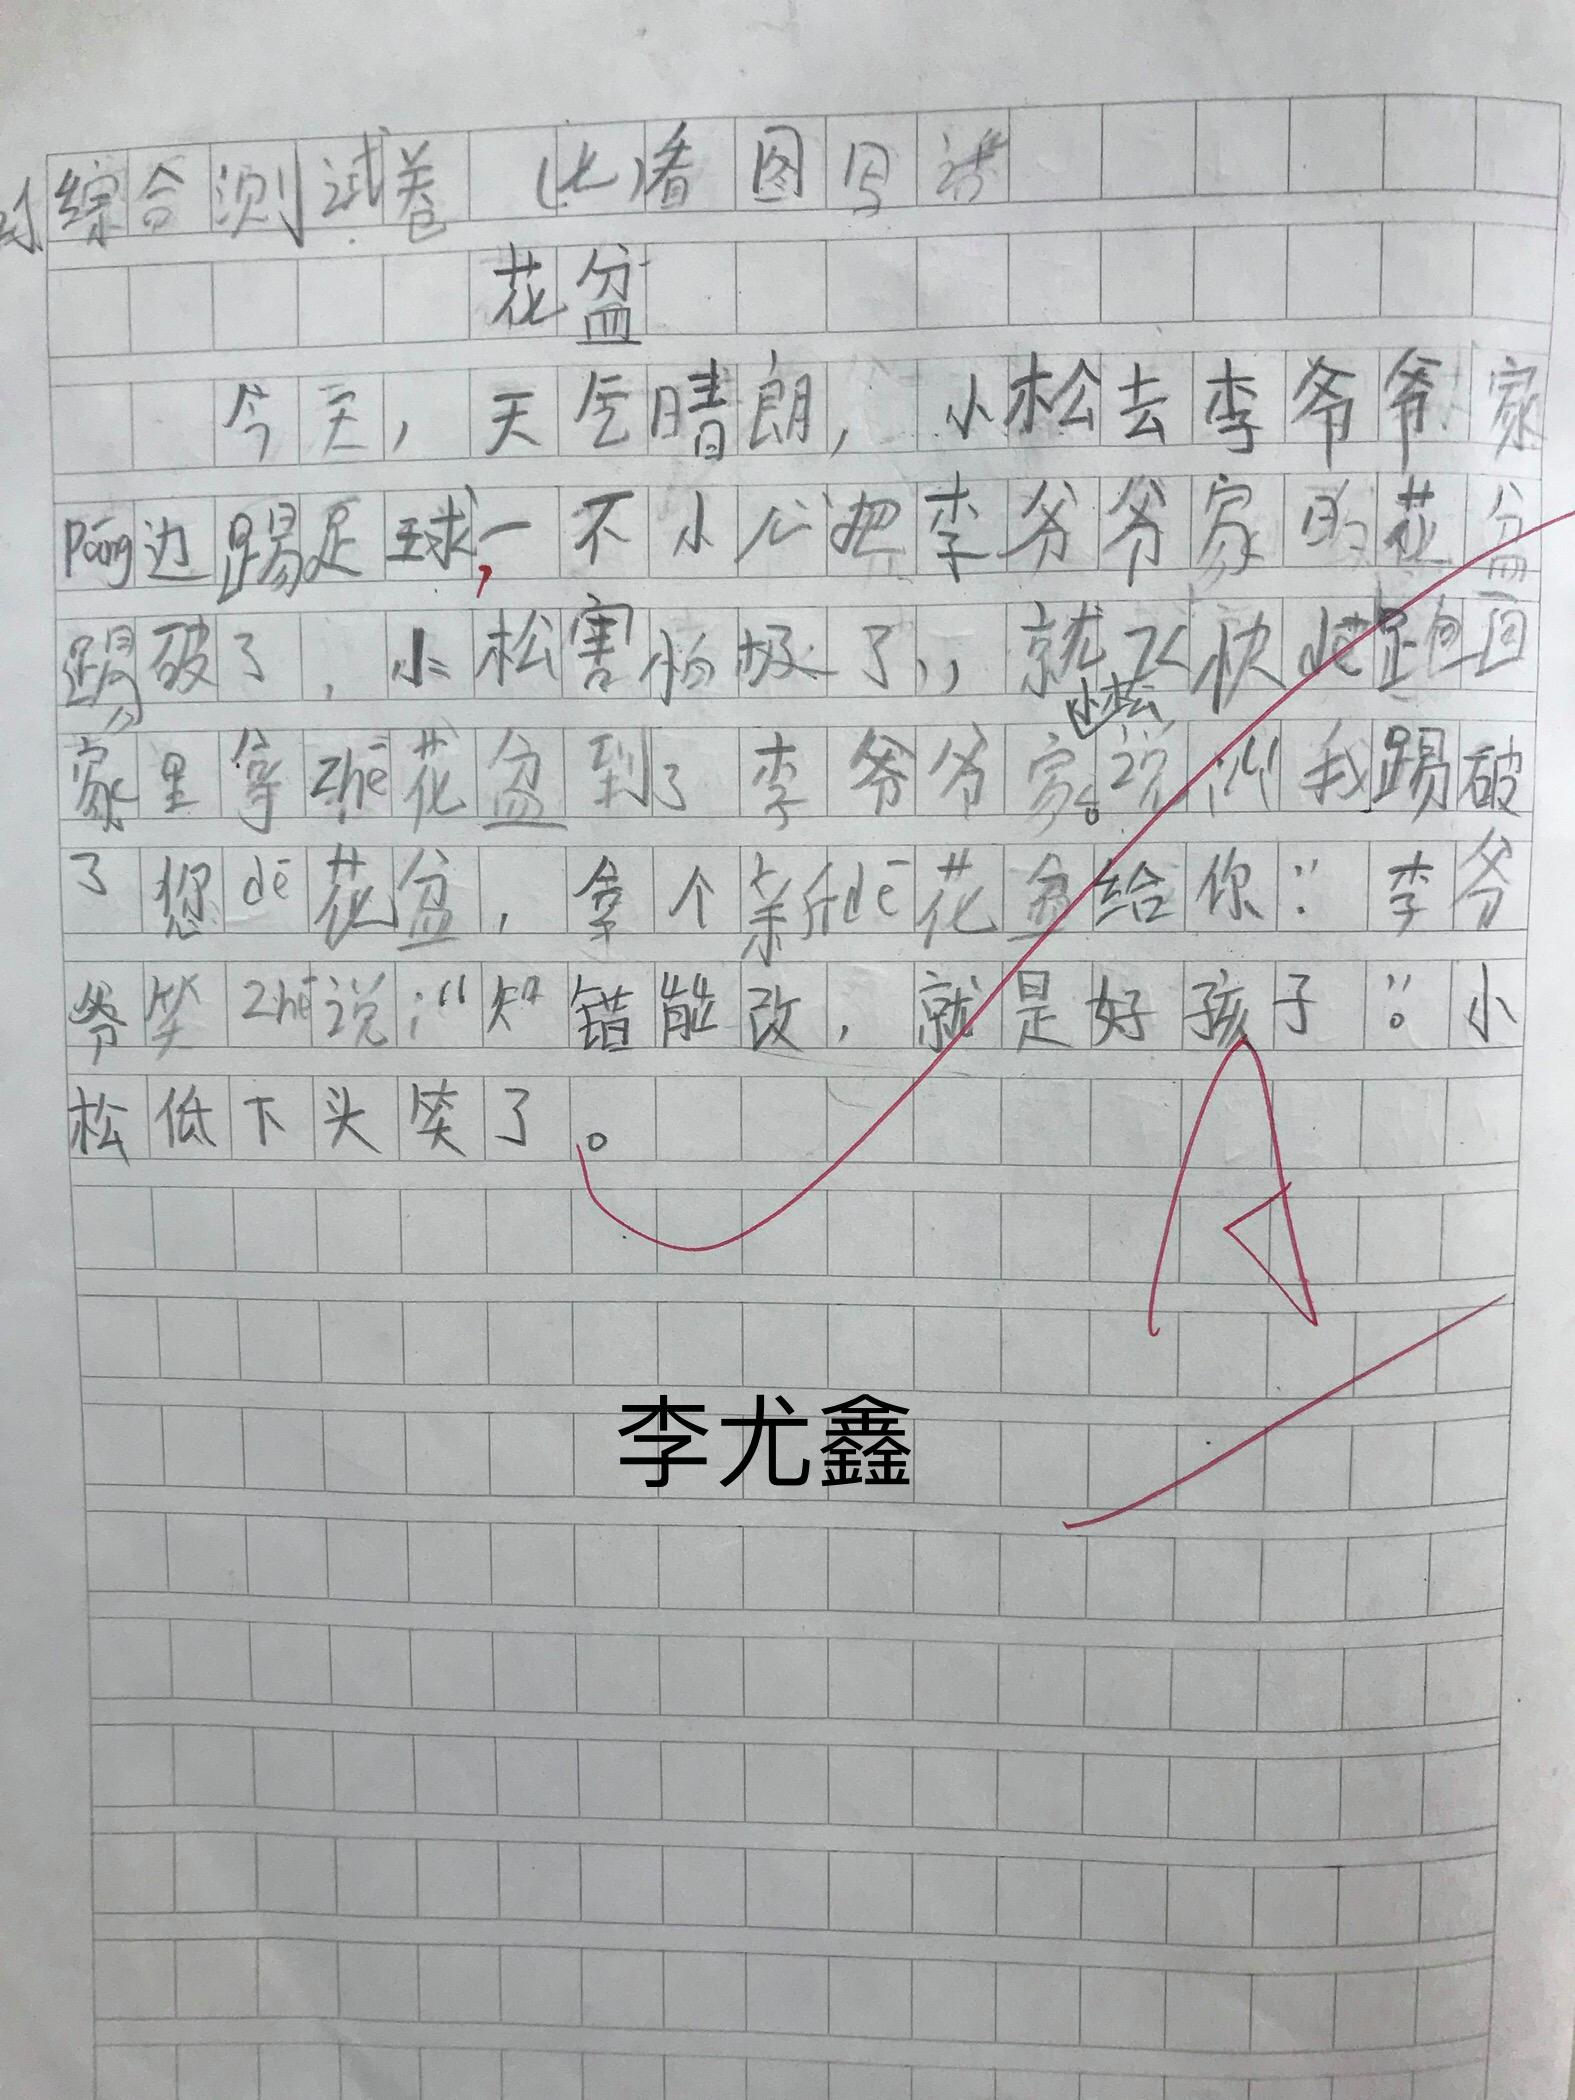 综合测试卷(七)看图写话
花盆
今天,天气晴朗,小松去李爷爷家
páng边踢足球,一不小心把李爷爷家的花盆
踢破了,小松害怕极了,,就飞快dē跑回
家里拿zhē花盆到了李爷爷家。小松说:“我踢破
了您dē花盆,拿个新dē花盆给你:”李爷
爷笑zhē说:“知错能改,就是好孩子。”小
松低下头笑了。
A
李尤鑫